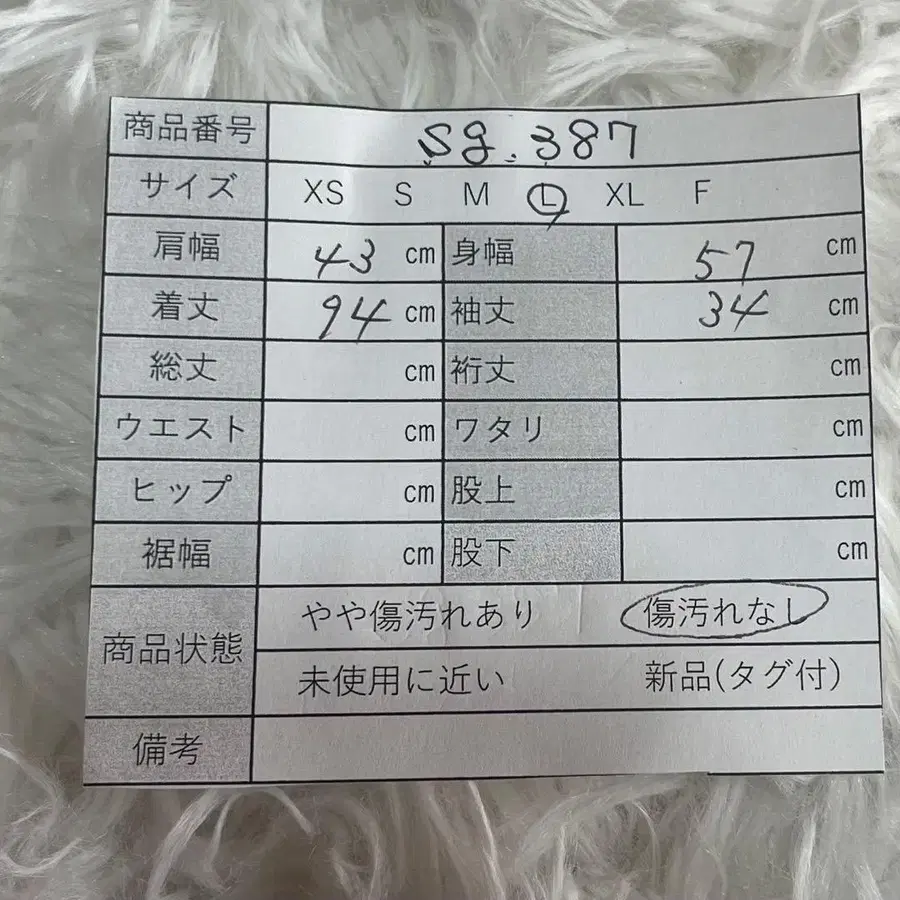 商品番号 sg.387
サイズ XS S M L XL F
肩幅 43 cm 身幅 57 cm
着丈 94 cm 袖丈 34 cm
総丈 cm 裄丈 cm
ウエスト cm ワタリ cm
ヒップ cm 股上 cm
裾幅 cm 股下 cm
商品状態 やや傷汚れあり 傷汚れなし
未使用に近い 新品(タグ付)
備考